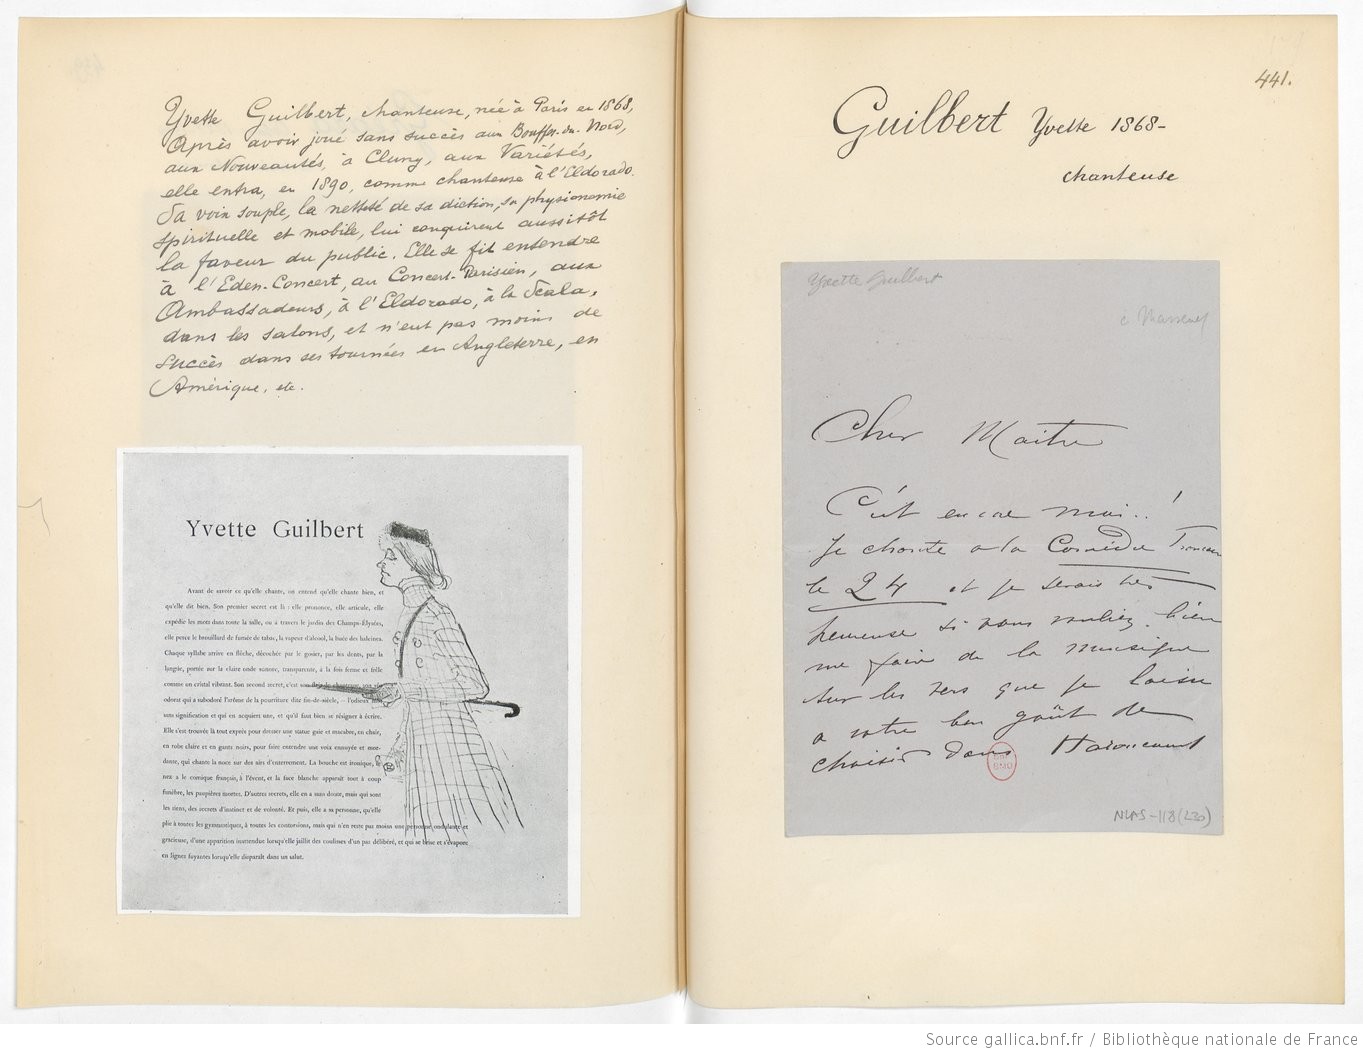 Yvette Guilbert, chanteuse, née à Paris en 1868,
Après avoir joué sans succès aux Bouffes-du-Nord,
aux Nouveautés, à Cluny, aux Variétés,
elle entra, en 1890, comme chanteuse à l'Eldorado.
Sa voix souple, la netteté de sa diction, sa physionomie
spirituelle et mobile, lui conquirent aussitôt
la faveur du public. Elle se fit entendre
à l'Eden-Concert, au Concert-Parisien, aux
Ambassadeurs, à l'Eldorado, à la Scala,
dans les salons, et n'eut pas moins de
succès dans ses tournées en Angleterre, en
Amérique, etc.
Yvette Guilbert
Avant de savoir ce qu'elle chante, on entend qu'elle chante bien, et
qu'elle dit bien. Son premier secret est là : elle prononce, elle articule, elle
expédie les mots dans toute la salle, ou à travers le jardin des Champs-Elysées,
elle perce le brouillard de fumée de tabac, la vapeur d'alcool, la buée des haleines.
Chaque syllabe arrive en flèche, décochée par le gosier, par les dents, par la
langue, portée sur la claire onde sonore, transparente, à la fois ferme et frêle
comme un cristal vibrant. Son second secret, c'est
odorat qui a subodoré l'arôme de la pourriture dite fin-de-siècle, — l'odieux mot
sans signification et qui en acquiert une, et qu'il faut bien se résigner à écrire.
Elle s'est trouvée là tout exprès pour dresser une statue gaie et macabre, en chair,
en robe claire et en gants noirs, pour faire entendre une voix enrouée et mor-
dante, qui chante la noce sur des airs d'enterrement. La bouche est ironique, le
nez a le comique français, à l'évent, et la face blanche apparaît tout à coup
funèbre, les paupières mortes. D'autres secrets, elle en a sans doute, mais qui sont
les siens, des secrets d'instinct et de volonté. Et puis, elle a sa personne, qu'elle
plie à toutes les gymnastiques, à toutes les contorsions, mais qui n'en reste pas moins une personne ondulante et
gracieuse, d'une apparition inattendue lorsqu'elle jaillit des coulisses d'un pas délibéré, et qui se brise et s'évapore
en lignes fuyantes lorsqu'elle disparaît dans un salut.
441.
Guilbert Yvette 1868-
chanteuse
Yvette Guilbert
à Massenet
Cher Maître
C'est encore moi..!
Je chante à la Comédie
le 24 et je serais très
heureuse si vous vouliez bien
me faire de la musique
sur les vers que je laisse
a votre bon goût de
choisir dans Haraucourt
NLAS-118(230)
Source gallica.bnf.fr / Bibliothèque nationale de France